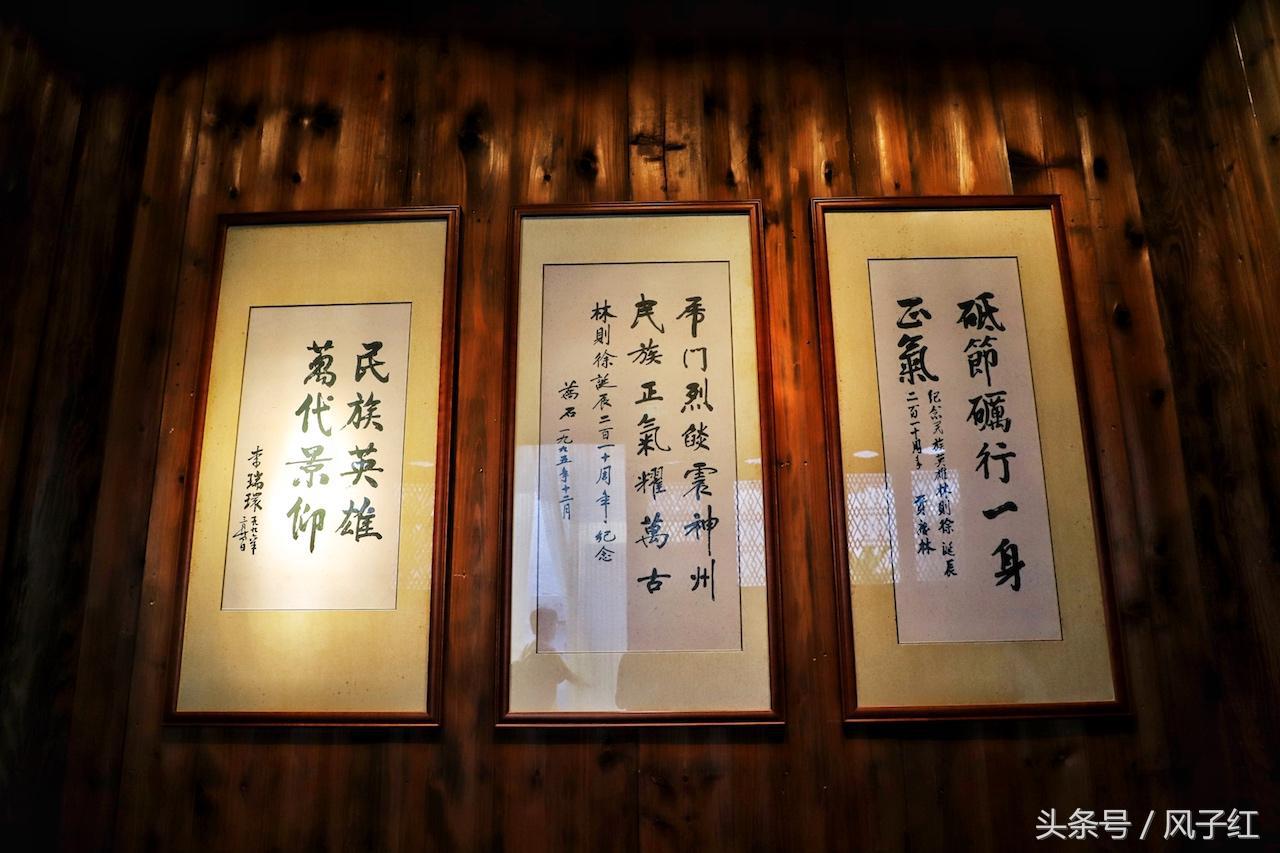 民族英雄
萬代景仰
李瑞環
虎门烈燄震神州
民族正氣耀萬古
林則徐誕辰二百一十周年纪念
一九九五年十二月
砥節礪行一身
正氣
纪念民族英雄林則徐誕辰
二百一十周年 贾慶林
头条号 / 风子红